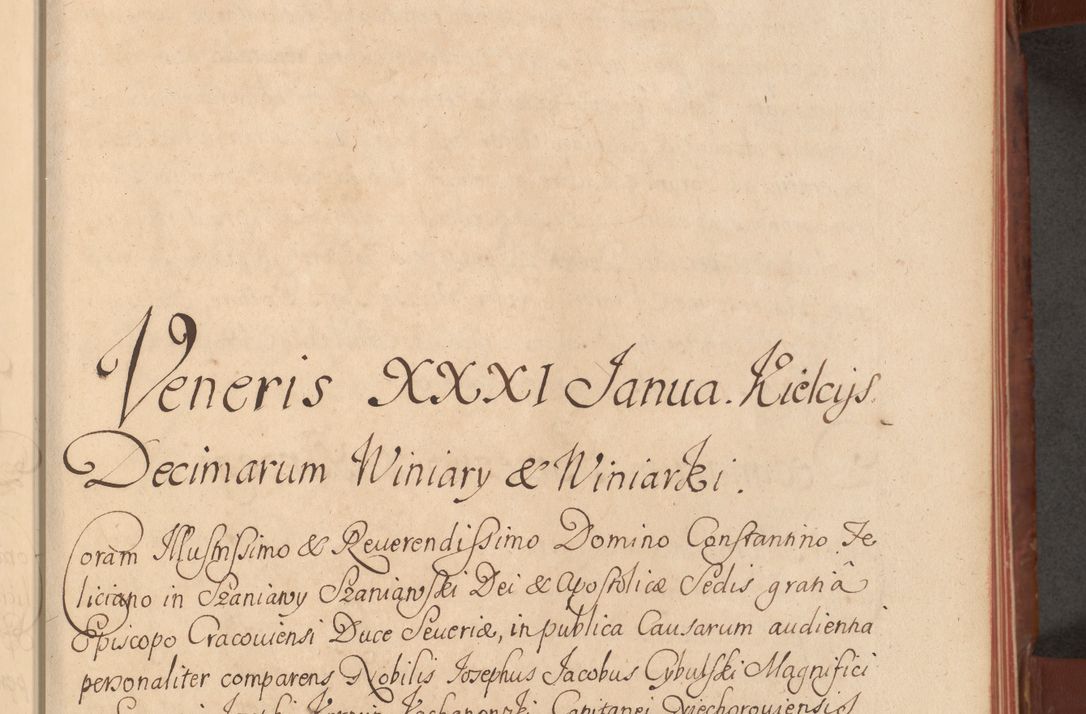 Veneris XXXI Janua. Kielcijs.
Decimarum Winiary & Winiarki.
Coram Illustrissimo & Reverendissimo Domino Constantino Fe
liciano in Szaniawy Szaniawski Dei & Apostolicæ Sedis gratiâ
Episcopo Cracoviensi Duce Severiæ, in publica Causarum audientia
personaliter comparens Nobilis Josephus Jacobus Cybulski Magnifici
Kochanowski Capitanei Miechoroviensis